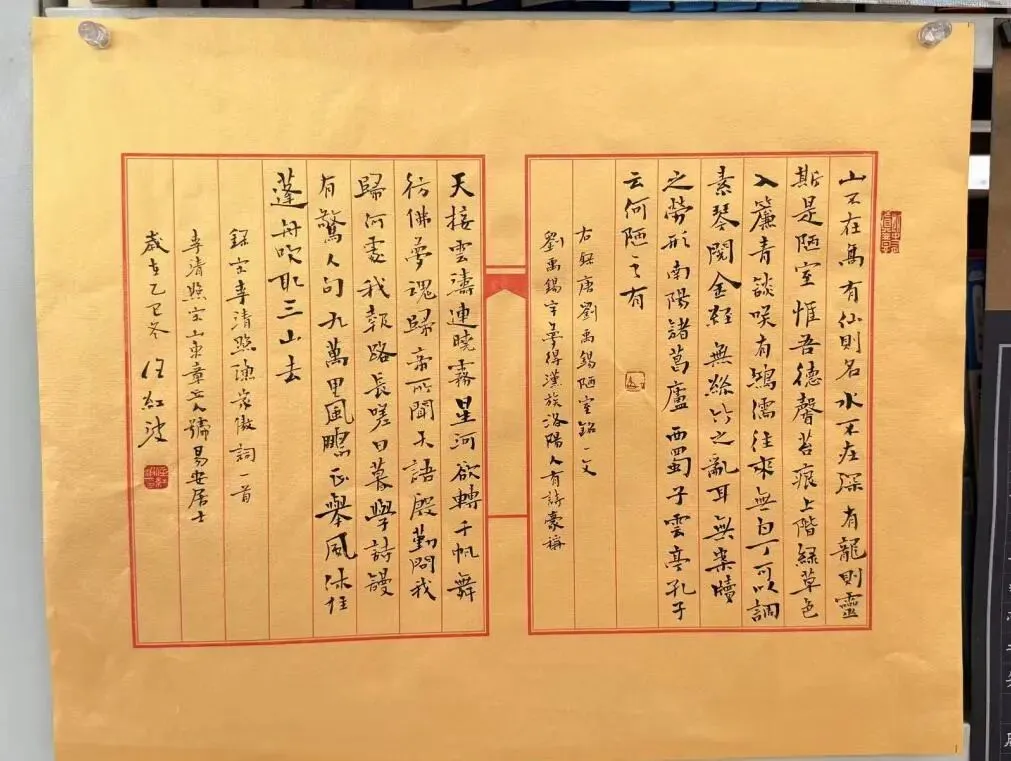 山不在高有仙則名水不在深有龍則靈
斯是陋室惟吾德馨苔痕上階綠草色
入簾青談咲有鴻儒往來無白丁可以調
素琴閱金經無絲竹之亂耳無案牘
之勞形南陽諸葛廬西蜀子雲亭孔子
云何陋之有
右錄唐劉禹錫陋室銘一文
劉禹錫字夢得漢族洛陽人有詩豪稱
天接雲濤連曉霧星河欲轉千帆舞
彷彿夢魂歸帝所聞天語殷勤問我
歸何處我報路長嗟日暮學詩謾
有驚人句九萬里風鵬正舉風休住
蓬舟吹取三山去
錄宋李清照漁家傲詞一首
李清照宋山東章丘人號易安居士
歲在乙巳冬 任紅波